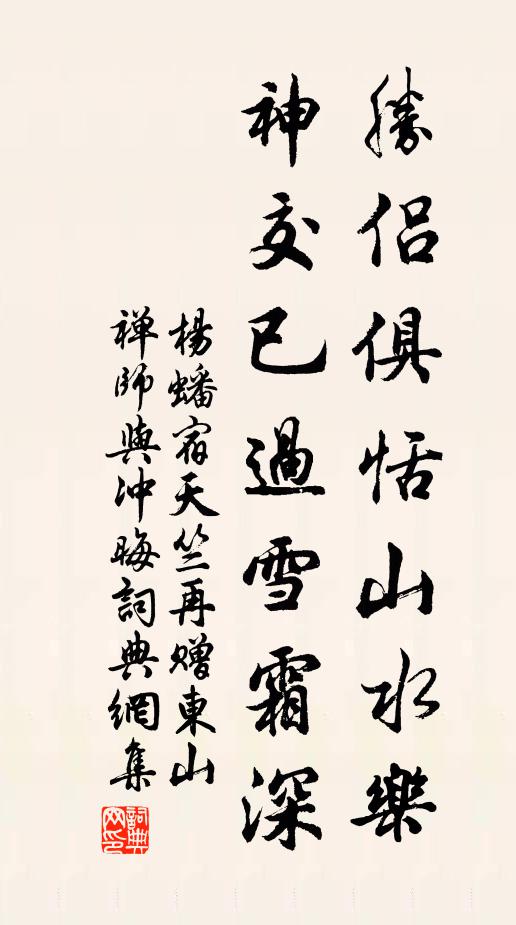 勝侶俱恬山水樂
神交已過雪霜深
楊蟠宿天竺再贈東山
禅師與冲晦詞典網集
詞典网印